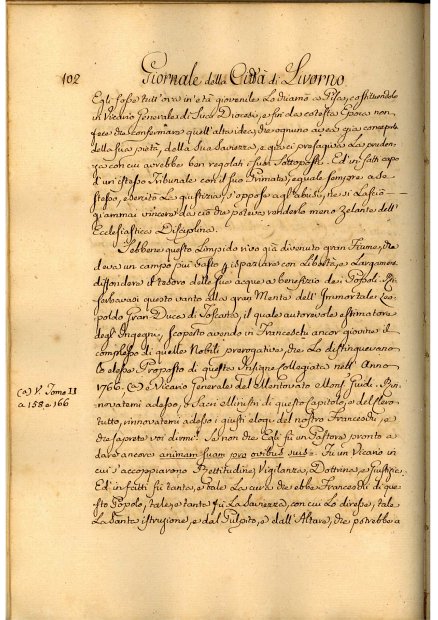 102 Giornale della Città di Livorno
Egli fosse tutt'ora in'età giovenile lo chiamò a Pisa, costituendolo
in Vicario Generale di sua Diocesi, e fin da cotesta Epoca non
fece che confermare quell'alta idea, che ognuno avea già concepita
della sua pietà, della sua saviezza, e quasi presagiva la pruden-
za con cui avrebbe ben regolati i suoi sottoposti. Ed in fatti capo
d'un'istesso Tribunale con il suo Primate, eguale sempre a se
stesso, esercitò la giustizia, s'oppose agl'abusi, ne si lasciò
giammai vincere da ciò che poteva renderlo meno zelante dell'
Ecclesiastica Disciplina.
Sebbene questo limpido rivo già divenuto gran Fiume, che
avea un campo più vasto p ispaziare con libertà, e largamente
diffondere il tesoro delle sue acque a benefizio de i Popoli. Ri-
serbavasi questo vanto alla gran Mente dell'Immortale Leo-
poldo Gran-Duca di Toscana, il quale autorevole estimatore
degl'Ingegni, scoperto avendo in Franceschi ancor giovine il
complesso di quelle Nobili prerogative, che lo distinguevano
lo elesse Proposto di questa Insigne Collegiata nell'Anno
1766. (a) e Vicario Generale del mentovato Mons. Guidi. Rin-
(a) V. Tomo II
a 158 e 166
novatemi adesso, o Sacri Ministri di questo Capitolo, e del Clero
tutto, rinnovatemi adesso i giusti elogi del nostro Franceschi, e
che saprete voi dirmi? Se non che Egli fù un Pastore pronto a
dare ancora animam suam pro ovibus suis. Fu un Vicario in
cui s'accoppiarono Rettitudine, Vigilanza, Dottrina, e Giustizia.
Ed in fatti fù tanta, e tale la cura che ebbe Franceschi di que-
sto Popolo, tale, e tanta fù la saviezza, con cui lo diresse, tale
la Santa istruzione, e dal Pulpito, e dall'Altare, che potrebbe a